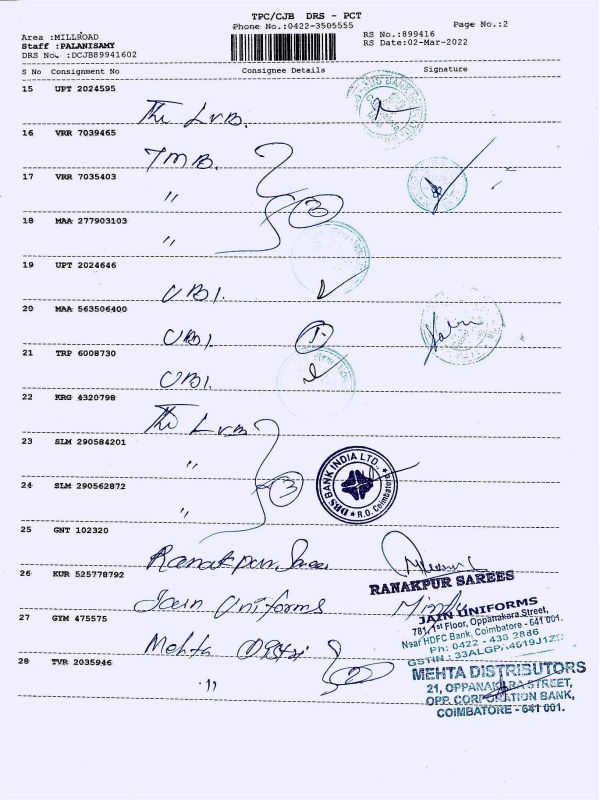 TPC/CJB DRS - PCT
Phone No.:0422-3505555
Page No.:2
Area :MILLROAD
Staff :PALANISAMY
DRS No. :DCJB89941602
RS No.:899416
RS Date:02-Mar-2022
S No Consignment No Consignee Details Signature
15 UPT 2024595
The LVB.
16 VRR 7039465
TMB.
17 VRR 7035403
"
3
18 MAA 277903103
"
19 UPT 2024646
UBI.
20 MAA 563506400
UBI.
21 TRP 6008730
UBI.
22 KRG 4320798
The LVB
23 SLM 290584201
"
24 SLM 290562872
3
"
DBS BANK INDIA LTD.
R.O. Coimbatore
25 GNT 102320
Ranakpur
RANAKPUR SAREES
26 KUR 525778792
Jain Uniforms
JAIN UNIFORMS
781, 1st Floor, Oppanakara Street,
Near HDFC Bank, Coimbatore - 641 001.
Ph: 0422 - 438 2886
27 GYM 475575
Mehta
MEHTA DISTRIBUTORS
21, OPPANAKARA STREET,
OPP. CORPORATION BANK,
COIMBATORE - 641 001.
28 TVR 2035946
"
2